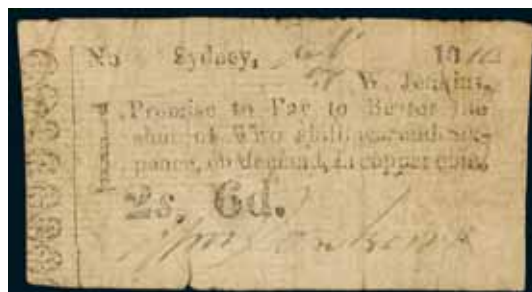 No Sydney, 181
W. Jenkins,
Promise to Pay to Bearer the
sum of Two shillings and six-
pence, on demand, in copper coin.
2s. 6d.